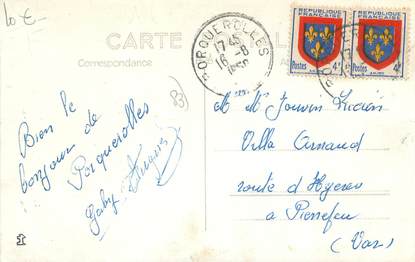 10 €
CARTE
Correspondance
PORQUEROLLES
17 45
16 - 8
RÉPUBLIQUE FRANÇAISE
RÉPUBLIQUE FRANÇAISE
Postes 4F
Postes 4F
83
Bien le
bonjour de
Porquerolles
Gaby
M Mr Jouvin Lucien
Villa Arnaud
route d'Hyères
à Pierrefeu
(Var)